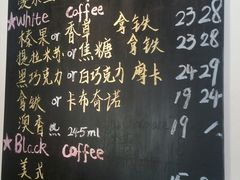 ★White Coffee
榛果 or 香草 拿铁 23 28
提拉米苏 or 焦糖 拿铁 23 28
黑巧克力 or 白巧克力 摩卡 24 29
拿铁 or 卡布奇诺 19 24
澳香 热 245ml 19 -
★Black Coffee
美式